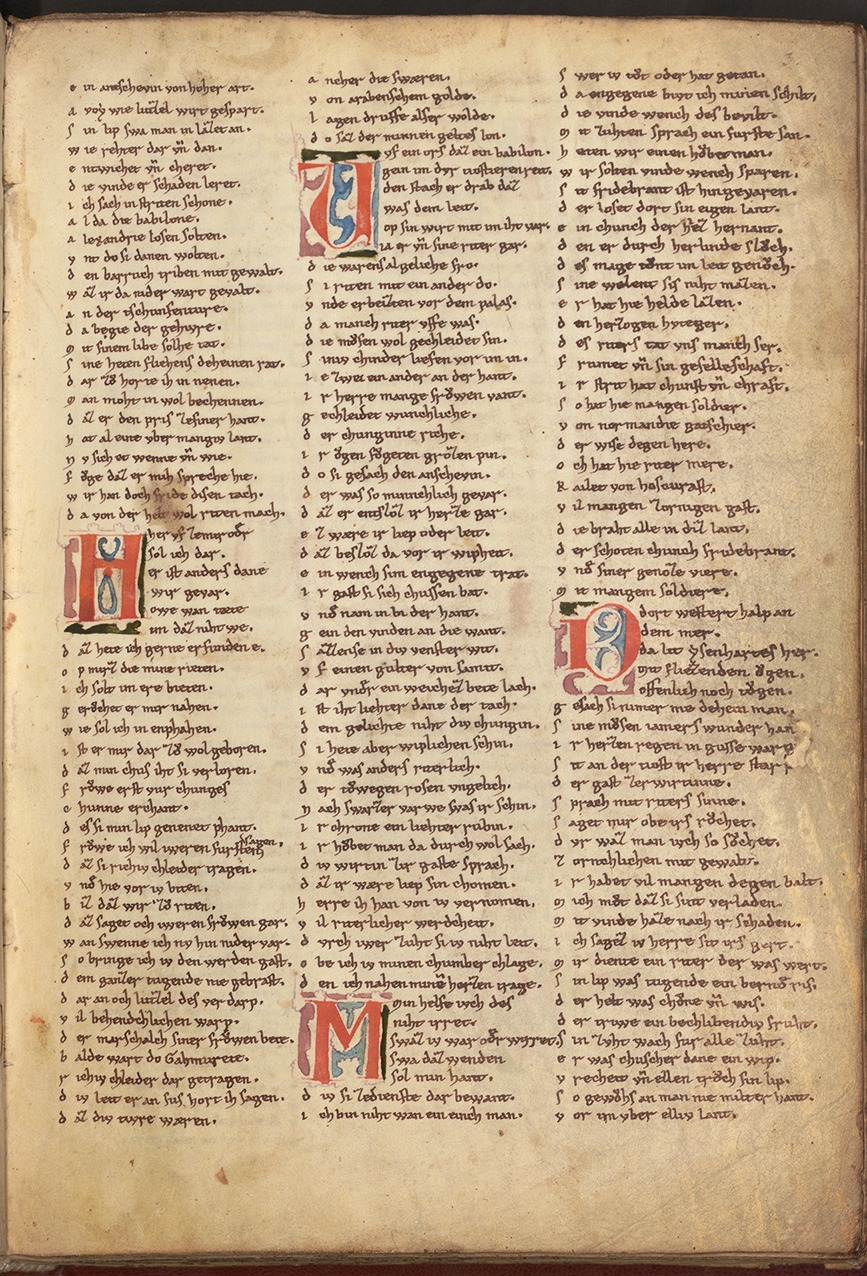 e in antschevin von hoher art.
a voy wie lutzel wirt gespart.
S in lip swa man in lazet an.
w ie rehter dar vn dan.
e ntwichet vn cheret.
d ie vinde er schaden leret.
i ch sach in striten schone.
a l da die babilone.
a lexandrie losen solten.
v nt do si danen wolten.
d en barruch triben mit gewalt.
w az ir da nider wart gevalt.
a n der tschunfenture.
d a begie der gehvre.
m it sinem libe solhe tat.
S ine heten fliehens deheinen rat.
d ar zo horte ih in nenen.
m an moht in wol bechennen.
d az er den pris zefiner hant.
h at al eine vber mangiv lant.
n v sich et wenne vn wie.
f oge daz er mih spreche hie.
w ir han doch fride disen tach.
d a von der helt wol riten mach.
H her vf ze mir oder
sol ich dar.
er ist anders dane
wir gevar.
owe wan tæte
im daz niht we.
d az hete ich gerne erfunden e.
o p mirz die mine rieten.
i ch solt im ere bieten.
g eröchet er mir nahen.
w ie sol ich in enphahen.
i st er mir dar zo wol geboren.
d az min chus iht si verloren.
f rowe erst fur chunges
c hunne erchant.
d es si min lip genenet phant.
f rowe ich wil iweren fursten sagen.
d az si richiv chleider tragen.
v nd hie vor iv biten.
b iz daz wir zo riten.
d az saget och iweren frowen gar.
w an swenne ich nv hin nider var.
S o bringe ich iv den werden gast.
d em ganzer tugende nie gebrast.
d ar an och lutzel des verdarp.
v il behendchlichen warp.
d er marschalch siner frowen bete.
b alde wart do Gahmurete.
r ichiv chleider dar getragen.
d iv leit er an sus hort ih sagen.
d az div tivre wæren.
a ncher die swæren.
v on arabenschem golde.
l agen druffe alser wolde.
d o saz der minnen geltes lon.
V vf ein ors daz ein babilon.
gein im dvr tiostieren reit.
den stach er drab daz
was dem leit.
op sin wirt mit im iht var.
ia er vn sine riter gar.
d ie waren salgeliche fro.
S i riten mit ein ander do.
v nde erbeizten vor dem palas.
d a manch riter vffe was.
d ie mösen wol gechleidet sin.
S iniv chinder liefen vor im in.
i e zwei ein ander an der hant.
i r herre mange fröwen vant.
g echleidet wunchliche.
d er chunginne riche.
i r ögen fögeten grözen pin.
d o si gesach den anschevin.
d er was so minnchlich gevar.
d az er entsloz ir herze gar.
e z wære ir liep oder leit.
d az besloz da vor ir wipheit.
e in wench sim engegene trat.
i r gast si sich chussen bat.
v nd nam in bi der hant.
g ein den vinden an die want.
S azense in div venster wit.
v f einen gulter von samit.
d ar vnder ein weichez bete lach.
i st iht liehter dane der tach.
d em geliche niht div chungin.
S i hete aber wiplichen schin.
v nd was anders riterlich.
d er towegen rosen vngelich.
n ach swarzer varwe was ir schin.
i r chrone ein liehter rubin.
i r höbet man da durch wol sach.
d iv wirtin zir gaste sprach.
d az ir wære liep sin chomen.
h erre ih han von iv vernomen.
v il riterlicher werdeheit.
d vrch iwer zuht si iv niht leit.
o be ich iv minen chumber chlage.
d en ich nahen mime herzen trage.
M min helfe iv ch des
niht irret.
swaz iv war oder wirret.
swa daz wenden
sol min hant.
d iv si ze dienste dar bewant.
i ch bin niht wan ein einch man.
S wer iv töt oder hat getan.
d a engegene biut ich minen schilt.
d ie vinde wench des bevilt.
m it zuhten sprach ein furste san.
h eten wir einen höbetman.
w ir solten vinde wench sparen.
s it fridebrant ist hin gevaren.
d er loset dort sin eigen lant.
e in chunch der hiez hernant.
d en er durch herlinde slöch.
d es mage tönt im leit genöch.
S ine welent sis niht mazen.
e r hat hie helde lazen.
d en herzogen hvteger.
d es riters tat vns manch ser.
f rumet vn sin geselleschaft.
i r strit hat chunst vn chraft.
S o hat hie mangen soldier.
v on normandie gatschier.
d er wise degen here.
o ch hat hie riter mere.
K ailet von hoscurast.
v il mangen zornigen gast.
d ie braht alle in diz lant.
d er schoten chunch fridebrant.
v nd siner genoze viere.
m it mangem soldiere.
D dort westert halp an
dem mer.
da lit ysenhartes her.
mit fliezenden ögen.
offenlich noch tögen.
g esach si nimer me dehein man.
S ine mösen iamers wunder han
i r herzen regen in gusse warp
S it an der tiost ir herre starp
d er gast zer wirtinne.
S prach mit riters sinne.
S aget mir obe irs röchet.
d vr waz man ivch so söchet.
z ornchlichen mit gewalt.
i r habet vil mangen degen balt.
m ich möt daz si sint verladen.
m it vinde hazze nach ir schaden.
i ch sagez iv herre sit irs gert.
m ir diente ein riter der was wert.
S in lip was tugende ein bernde ris.
d er helt was chöne vn wis.
d er triwe ein bechlibendiv fruht.
S in zuht wach fur alle zuht.
e r was chuscher dane ein wip.
v recheit vn ellen tröch sin lip.
S o gewöhs an man nie milter hant.
v or im vber elliv lant.